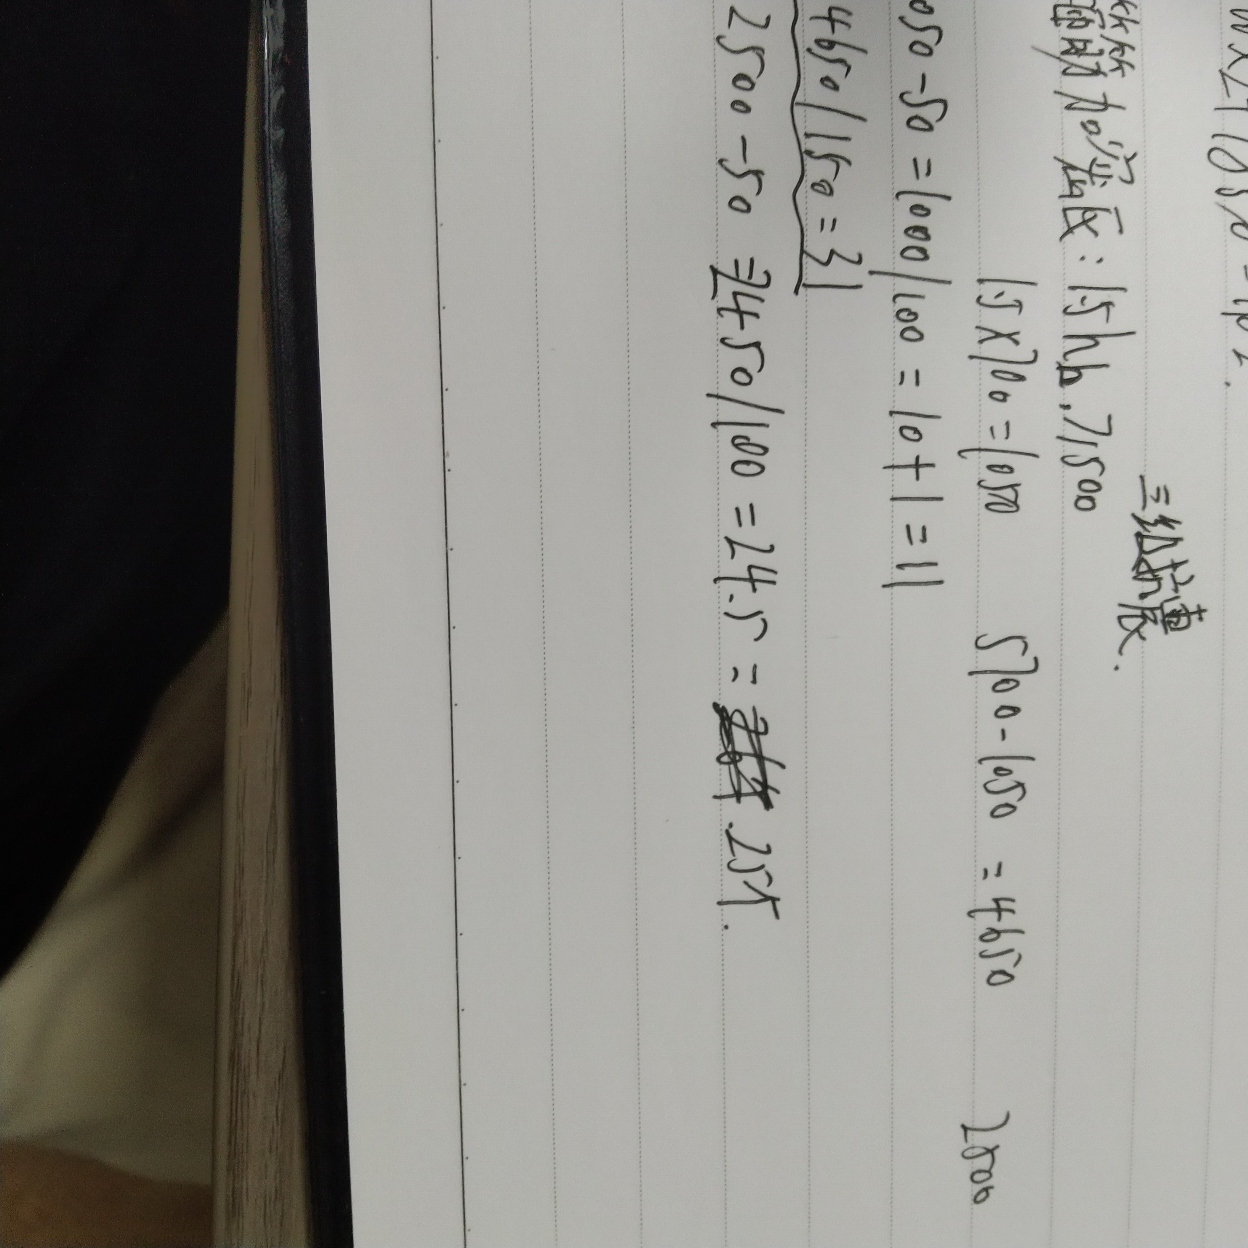 三级抗震.
箍筋加密区: 1.5hb, 7/500
1.5×700=1050 5700-1050=4650 2500
050-50=1000/100=10+1=11
4650/150=31
2500-50=2450/100=24.5=25个.